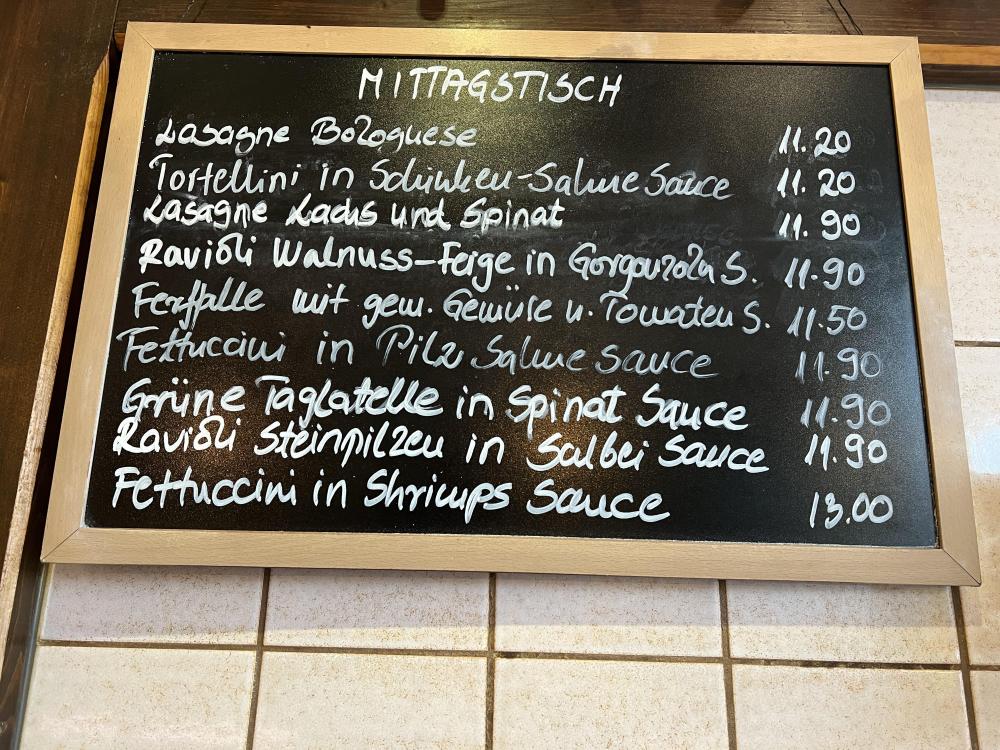 MITTAGSTISCH
Lasagne Bolognese 11.20
Tortellini in Schinken-Sahne Sauce 11.20
Lasagne Lachs und Spinat 11.90
Ravioli Walnuss-Feige in Gorgonzola S. 11.90
Farffalle mit gem. Gemüse u. Tomaten S. 11.50
Fettuccini in Pilz Sahne Sauce 11.90
Grüne Taglatelle in Spinat Sauce 11.90
Ravioli Steinpilzen in Salbei Sauce 11.90
Fettuccini in Shrimps Sauce 13.00